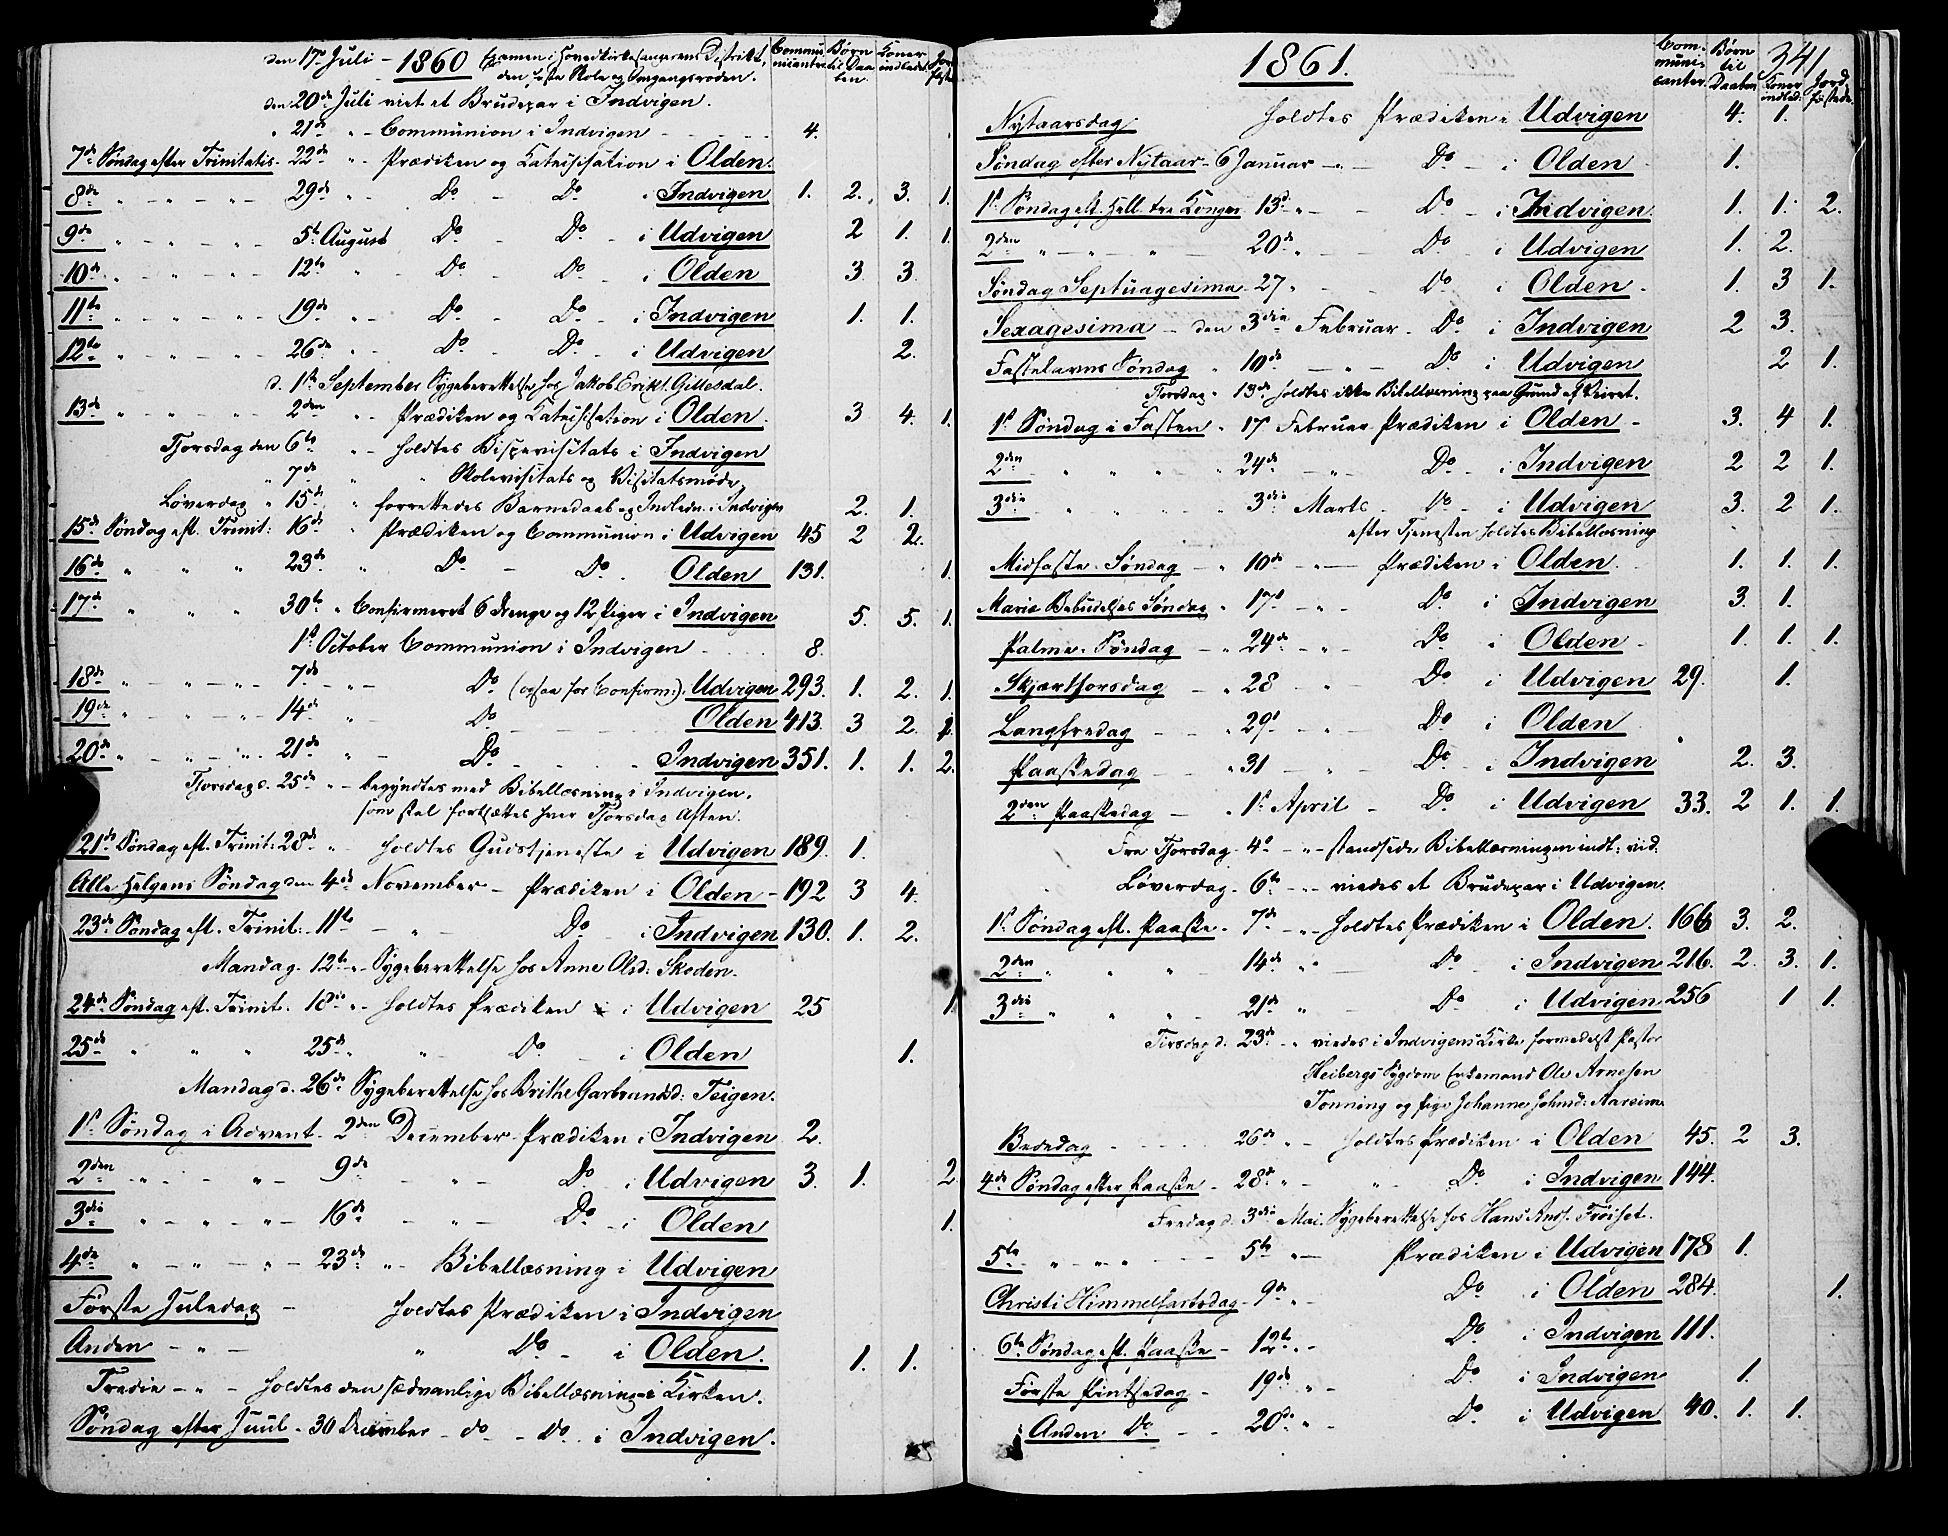 den 17de Juli - 1860 Examen i Hovedkirkesangerens Distrikt,
den faste Skole og Omgangsroden.
Communicanter. Børn til Daaben Koner indledet Jordfæstede
den 20de Juli viet et Brudepar i Indvigen.
" 21de " - Communion i Indvigen - - - 4.
7de Søndag efter Trinitatis - 22de " - Prædiken og Katechisation i Olden.
8de " - " - " - 29de " - Do - Do - i Indvigen 1. 2. 3. 1.
9de " - " - " - 5te August Do - Do - i Udvigen 2 1. 1.
10de " - " - " - 12te " - Do - Do - i Olden 3 3.
11te " - " - " - 19de " - Do - Do - i Indvigen 1. 1.
12te " - " - " - 26de " - Do - Do - i Udvigen 2.
d. 1ste September Sygeberettelse hos Jakob Eriks. Gittesdal.
13de " - " - " - 2den " - Prædiken og Katechisation i Olden 3 4. 1.
Tjorsdag den 6te " - holdtes Bispevisitats i Indvigen
" 7de " " Skolevisitats og Visitatsmøde
Løverdag " 15de " forrettedes Barnedaab og Indledn. i Indvigen 2. 1.
15de Søndag eft. Trinit: 16de " Prædiken og Communion i Udvigen 45 2 2.
16de " " " 23de " Do - Do. Olden 131. 1.
17de " " " 30te " Confirmeret 6 Drenge og 12 Piger i Indvigen 5. 5. 1.
1ste October Communion i Indvigen - - - 8.
18de " - " - " - 7de - " - Do (ogsaa for Confirm.). Udvigen 293. 1. 2. 1.
19de " - " - " - 14de " - Do - - - Olden 413. 3 2 1.
20de " - " - " - 21de " - Do - - - Indvigen 351. 1. 1. 2.
Tjorsdag d. 25de " - begyndtes med Bibellæsning i Indvigen,
som skal fortsættes hver Tjorsdag Aften.
21de Søndag eft. Trinit: 28de " holdtes Gudstjeneste i Udvigen 189. 1.
Alle Helgens Søndag den 4de November - Prædiken i Olden - 192 3 4.
23de Søndag eft. Trinit: 11te - " - Do - i Indvigen 130. 1. 2.
Mandag - 12te " - Sygeberettelse hos Anne Olsd: Skoden.
24de Søndag eft. Trinit. 18de " - holdtes Prædiken i Udvigen 25 1
25de " " " 25de " " - Do - i Olden 1.
Mandag d. 26de Sygeberettelse hos Brithe Garbrandsd: Teigen.
1ste Søndag i Advent - 2den December Prædiken i Indvigen 2.
2den " - " - 9de - " - Do - i Udvigen 3. 1. 2
3die " - " - " - 16de - " - Do - i Olden 1.
4de " - " - " - 23de " - Bibellæsning i Udvigen
Første Juledag - holdtes Prædiken i Indvigen
Anden - " - " Do - i Olden. 1. 1.
Tredie - " - holdtes den sædvanlige Bibellæsning i Kirken.
Søndag efter Juul - 30 December - do - Do - i Indvigen.
1861. 341
Communicanter. Børn til Daaben Koner indled: Jordfæstede.
Nytaarsdag holdtes Prædiken i Udvigen 4. 1.
Søndag efter Nytaar - 6 Januar - " - Do - i Olden 1.
1ste Søndag eft. Hell. tre Konger 13de " - Do - i Indvigen. 1. 1. 2.
2den " - " - " 20de " - Do - i Udvigen 1. 2.
Søndag Septuagesima - 27 " - Do i Olden - 1. 3 1.
Sexagesima - den 3die Februar - Do i Indvigen 2 3.
Fastelavns Søndag " 10de - " - Do i Udvigen 2 1.
Tjorsdag " 13de holdtes ikke Bibellæsning paa Grund af Veiret.
1ste Søndag i Fasten " 17 Februar Prædiken i Olden - 3. 4 1.
2den " " " " 24de - " - Do - i Indvigen 2 2 1.
3die " " " " 3die Marts - Do - i Udvigen 3. 2 1.
efter Tjenesten holdtes Bibellæsning
Midfaste Søndag - " 10de - " - Prædiken i Olden. 1. 1. 1.
Mariæ Bebudelses Søndag " 17de - " - Do i Indvigen 3. 1.
Palme Søndag - " 24de - " - Do i Olden - 1. 1. 1.
Skjærthorsdag - " 28 " Do i Udvigen 29. 1.
Langfredag - - " 29de " - Do i Olden
Paaskedag - - " 31 - " - Do i Indvigen 2. 3.
2den Paaskedag - " 1ste April - Do - i Udvigen 33. 2 1. 1.
Fra Tjorsdag 4de " - standsede Bibellæsningen indt: vid:
Løverdag - 6te " - viedes et Brudepar i Udvigen.
1ste Søndag eft. Paaske - 7de " - holdtes Prædiken i Olden. 166 3. 2.
2den " " " 14de " Do - i Indvigen 216. 2. 3. 1.
3die " " " - 21de " - Do - i Udvigen 256 1 1.
Tirsdag d. 23de " viedes i Indvigens Kirke formedelst Pastor
Heibergs Sygdom Enkemand Ole Arnesen
Tonning og Pige Johanne Johnsd: Aarheim
Bededag - - - 26de " - holdtes Prædiken i Olden 45. 2 3.
4de Søndag efter Paaske - 28de " - " - Do - i Indvigen 144.
Fredag d. 3die Mai Sygeberettelse hos Hans Ands. Frøiset.
5te - " - " - " - 5te " - Prædiken i Udvigen 178 1.
Christi Himmelfartsdag - 9de " - Do i Olden 284. 1.
6te Søndag eft. Paaske - 12te " - Do i Indvigen 111.
Første Pintsedag - 19de " - Do i Indvigen 1.
Anden Do - - 20de " - Do i Udvigen 40. 1. 1.